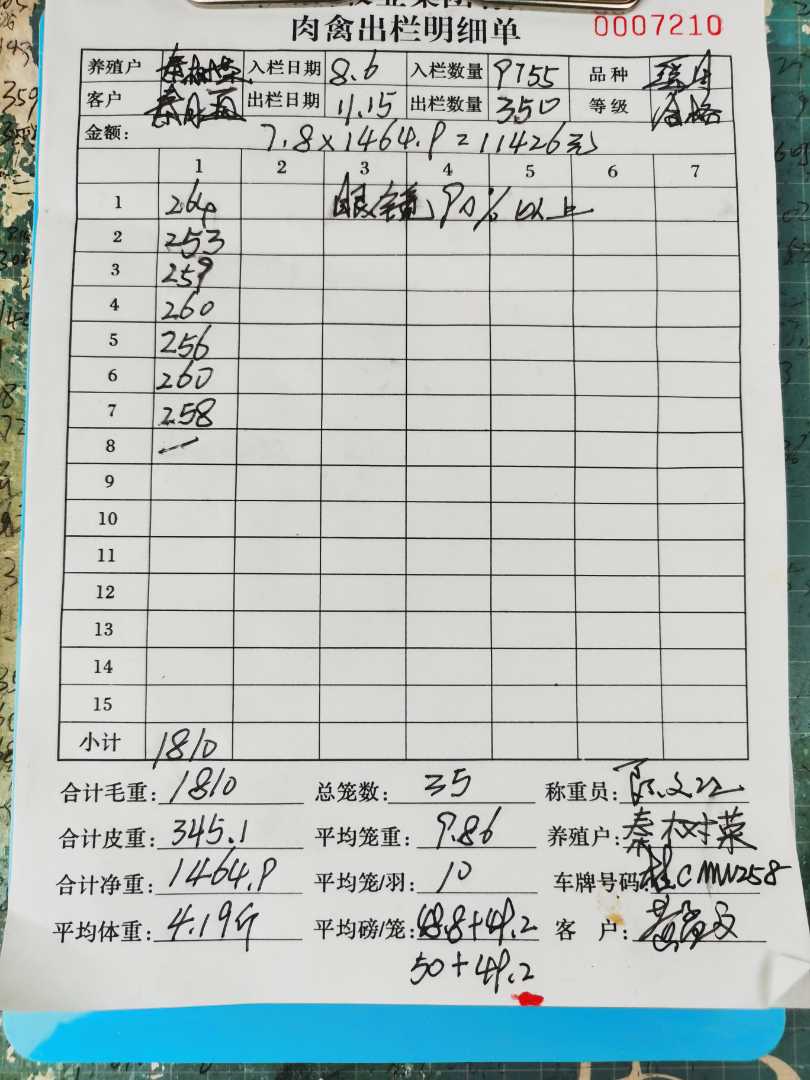 肉禽出栏明细单 0007210
养殖户 秦树荣 入栏日期 8.6 入栏数量 9755 品种
客户 出栏日期 11.15 出栏数量 350 等级 合格
金额: 7.8×1464.9=11426元
1 2 3 4 5 6 7
1 264 眼镜90%以上
2 253
3 259
4 260
5 256
6 260
7 258
8 一
9
10
11
12
13
14
15
小计 1810
合计毛重: 1810 总笼数: 35 称重员:
合计皮重: 345.1 平均笼重: 9.86 养殖户: 秦树荣
合计净重: 1464.9 平均笼/羽: 10 车牌号码: 桂CMW258
平均体重: 4.19斤 平均磅/笼: 48.8+49.2 客 户:
50+49.2